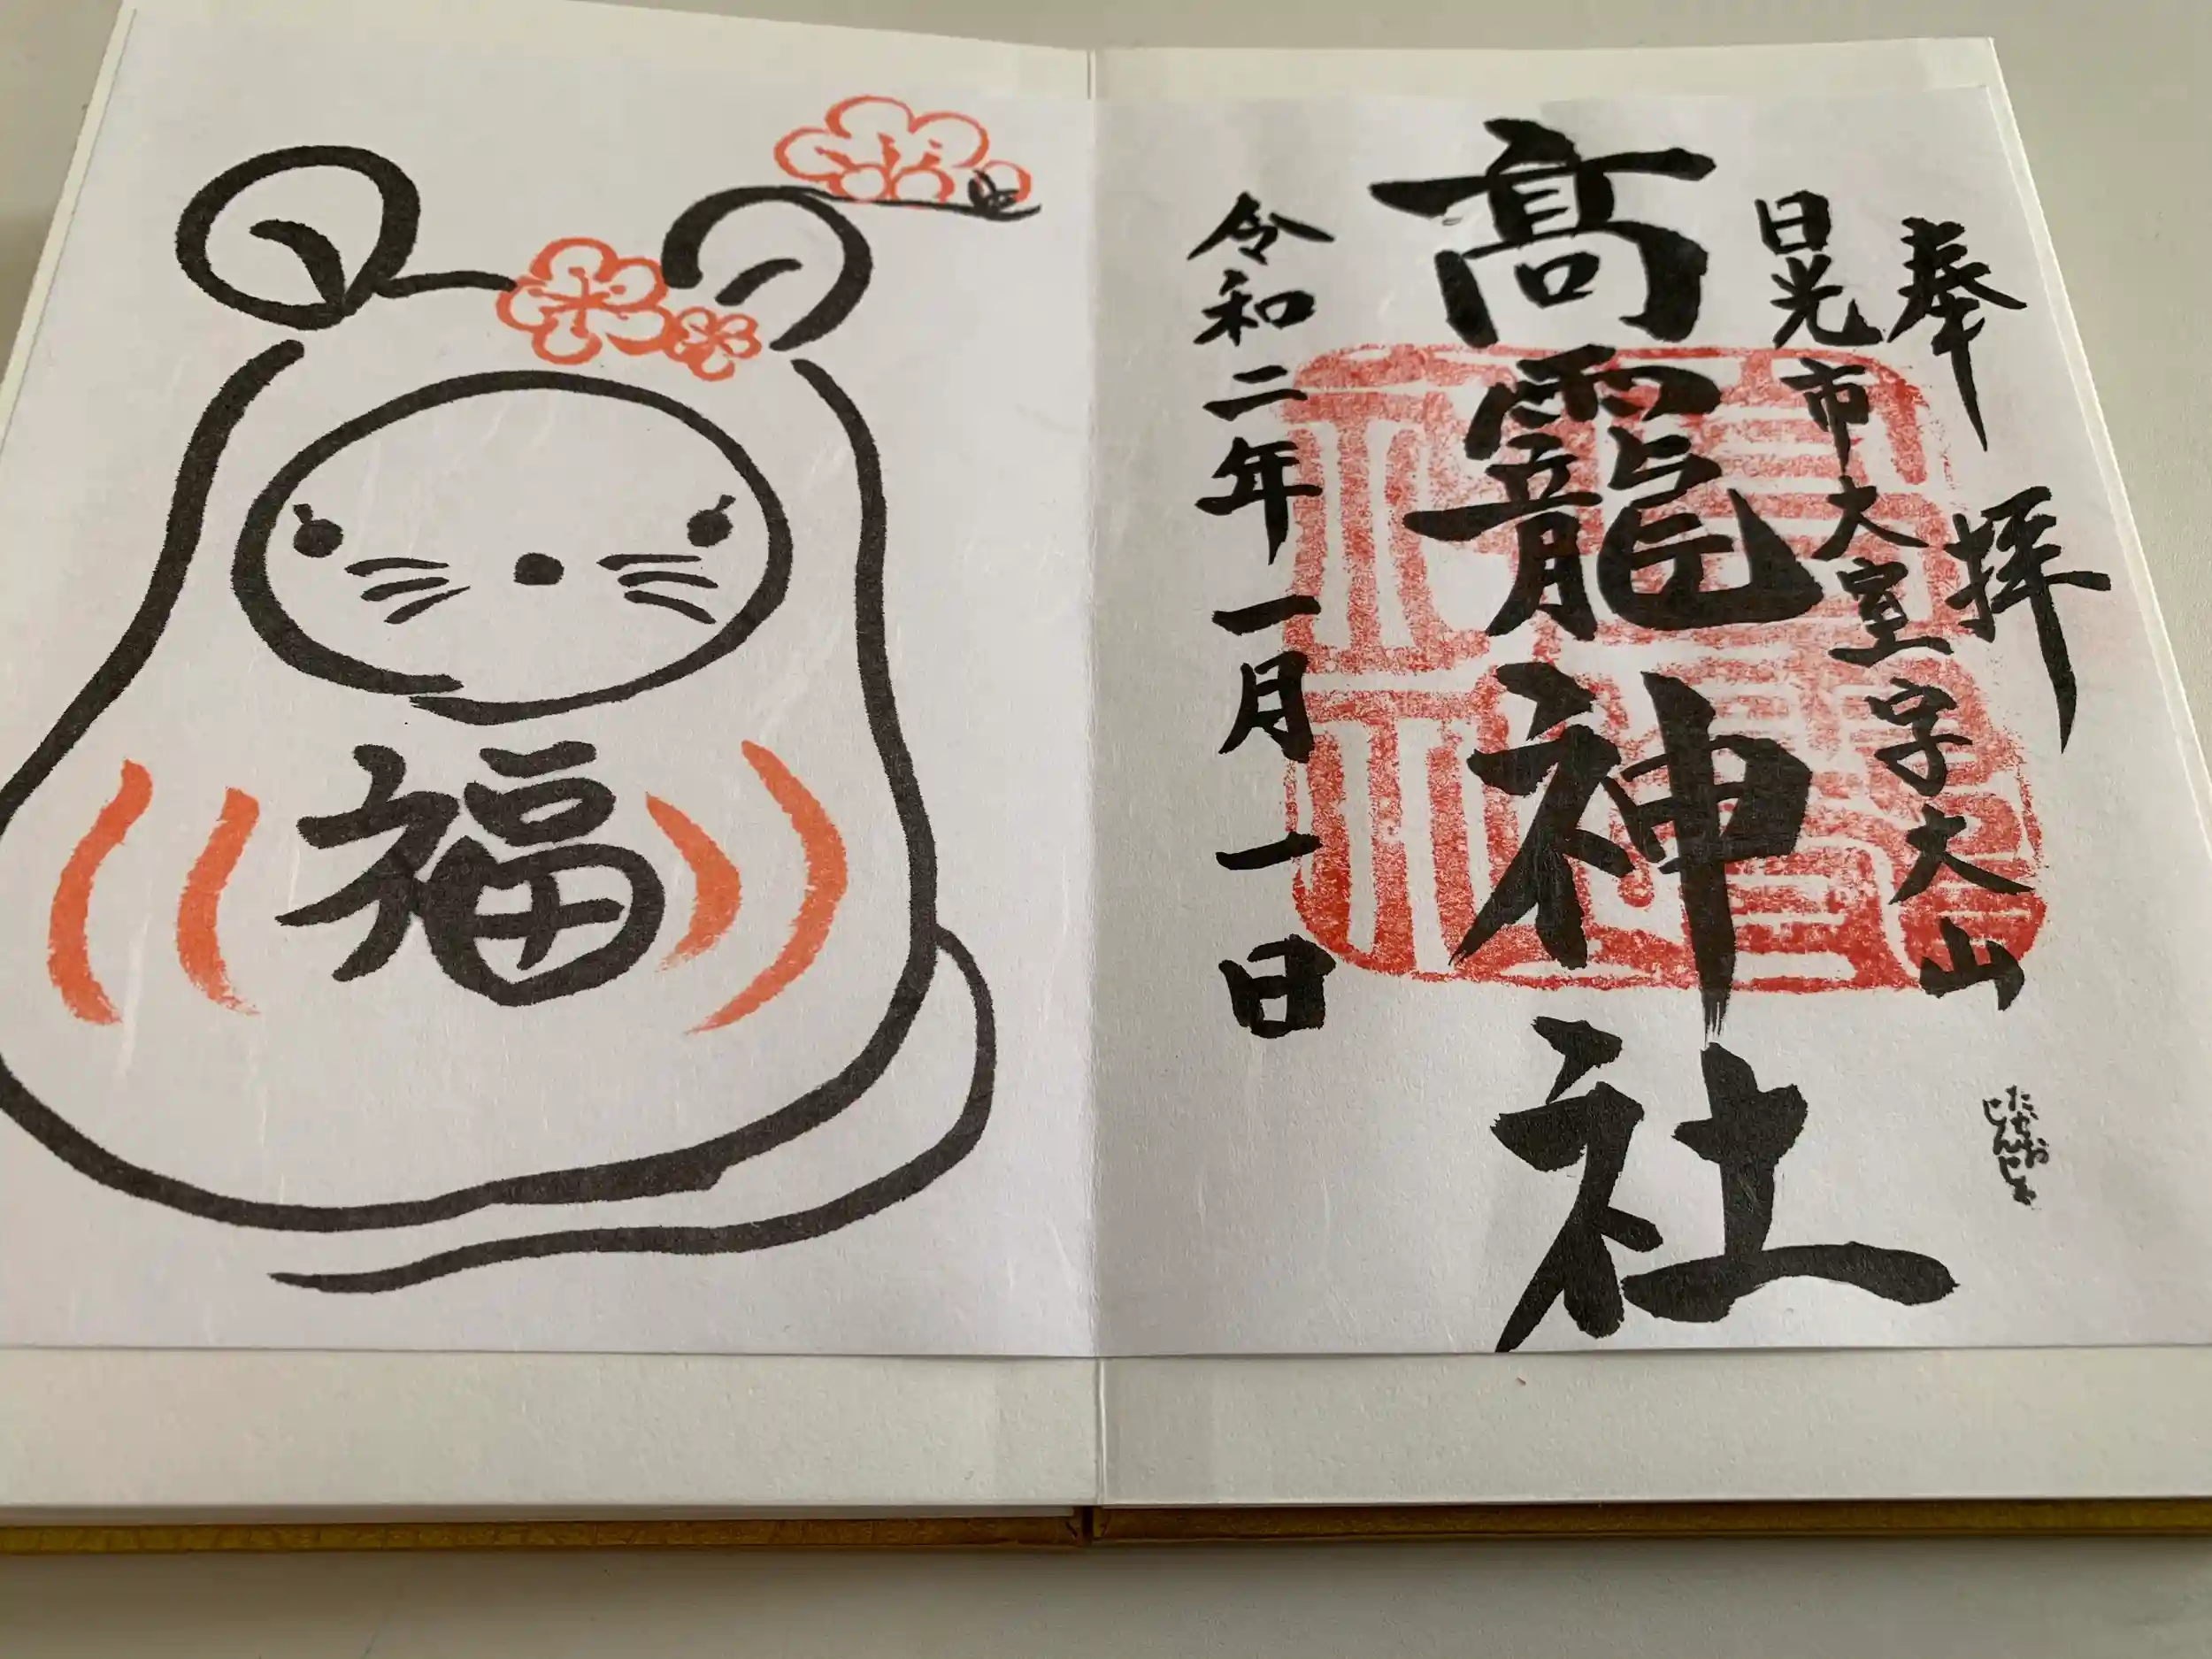 奉拝
日光市大室字大山
たかお
じんじゃ
高龗神社
令和二年一月一日
福